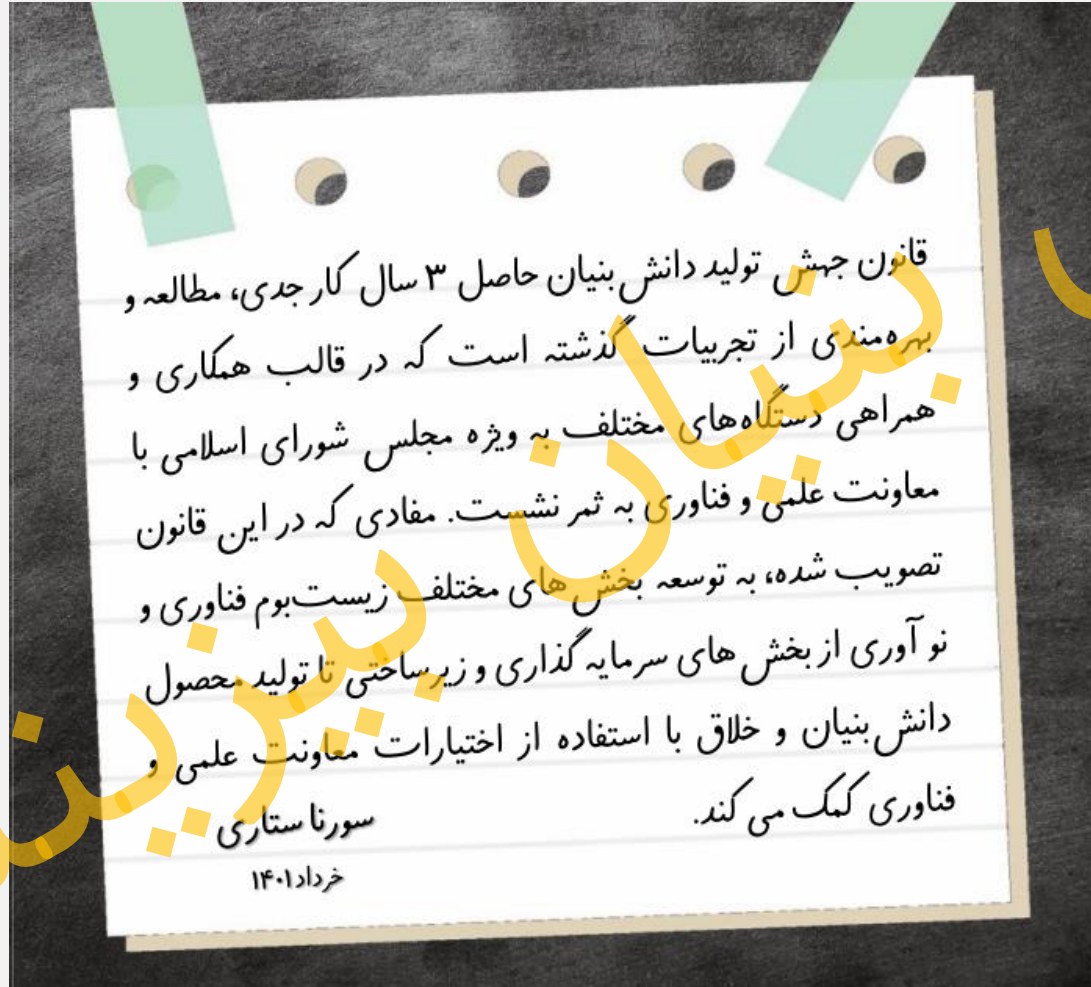 قانون جهش تولید دانش‌بنیان حاصل ۳ سال کار جدی، مطالعه و
بهره‌مندی از تجربیات گذشته است که در قالب همکاری و
همراهی دستگاه‌های مختلف به ویژه مجلس شورای اسلامی با
معاونت علمی و فناوری به ثمر نشست. مفادی که در این قانون
تصویب شده، به توسعه بخش های مختلف زیست‌بوم فناوری و
نو آوری از بخش های سرمایه گذاری و زیرساختی تا تولید محصول
دانش‌بنیان و خلاق با استفاده از اختیارات معاونت علمی و
فناوری کمک می کند.
سورنا ستاری
خرداد ۱۴۰۱
بنیان